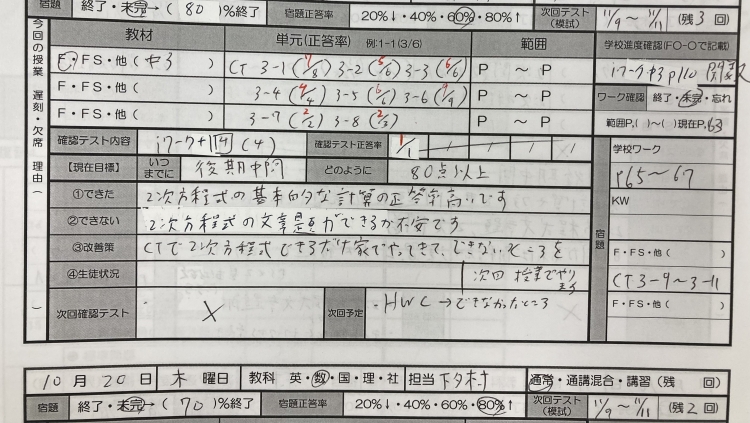 宿題 終了・未完→( 80 )%終了 宿題正答率 20%↓・40%・60%・80%↑ 次回テスト(模試) 11/9 ～ 11/11 (残 3 回)
今回の授業 遅刻・欠席 理由( )
教材 単元(正答率) 例:1-1(3/6) 範囲 学校進度確認(FO-Oで記載)
F・FS・他( 中3 ) CT 3-1 (7/8) 3-2 (5/6) 3-3 (6/6) P ～ P iワーク中3 p110
F・FS・他( ) 3-4 (4/4) 3-5 (6/6) 3-6 (9/9) P ～ P ワーク確認 終了・未完・忘れ
F・FS・他( ) 3-7 (2/2) 3-8 (2/3) P ～ P 範囲P.( )～( )現在P.63
確認テスト内容 iワーク+ 14 (4) 確認テスト正答率 1/1 / / / /
学校ワーク
【現在目標】 いつまでに 後期中間 どのように 80点以上
P65～67
①できた 2次方程式の基本的な計算の正答率高いです
KW
②できない 2次方程式の文章題ができるか不安です
宿題
③改善策 CTで2次方程式できるだけ家でやってきて、できないところを
F・FS・他( )
④生徒状況 次回授業でやります
CT3-9～3-11
次回確認テスト × 次回予定 ・HWC→できなかったところ
F・FS・他( )
10月20日 木曜日 教科 英・数・国・理・社 担当 下村 通常・通講混合・講習(残 回)
宿題 終了・未完→( 70 )%終了 宿題正答率 20%↓・40%・60%・80%↑ 次回テスト(模試) 11/9 ～ 11/11 (残 2 回)